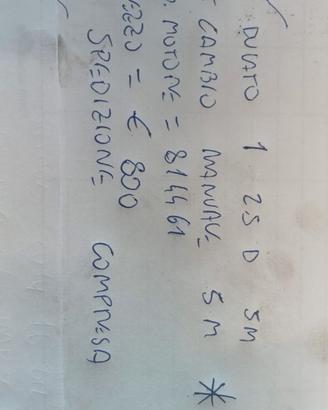 DUCATO 1 25 D 5M
CAMBIO MANUALE 5 M *
MOTORE = 8144 61
EZZO = € 800
SPEDIZIONE COMPRESA